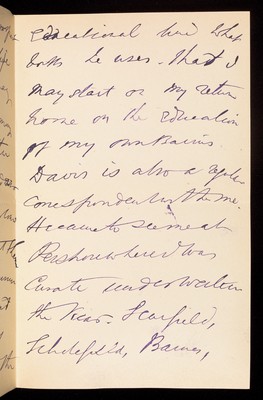 educational bird what
books he uses. that I
may start on my return
home on the education
of my own Bairns.
Davis is also a regular
correspondent with me.
He came to see me at
Pershore where I was
Curate under
the Vicar. Scarfield,
Scholefield, Barnes,